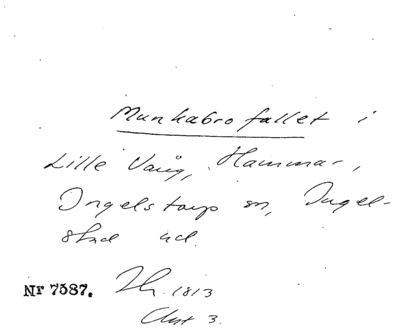 Munkabrofallet i
Lille Vång, Hammar,
Ingelstorps sn, Ingel-
stad hd.
Nr 7587. Th. 1813
Akt 3.